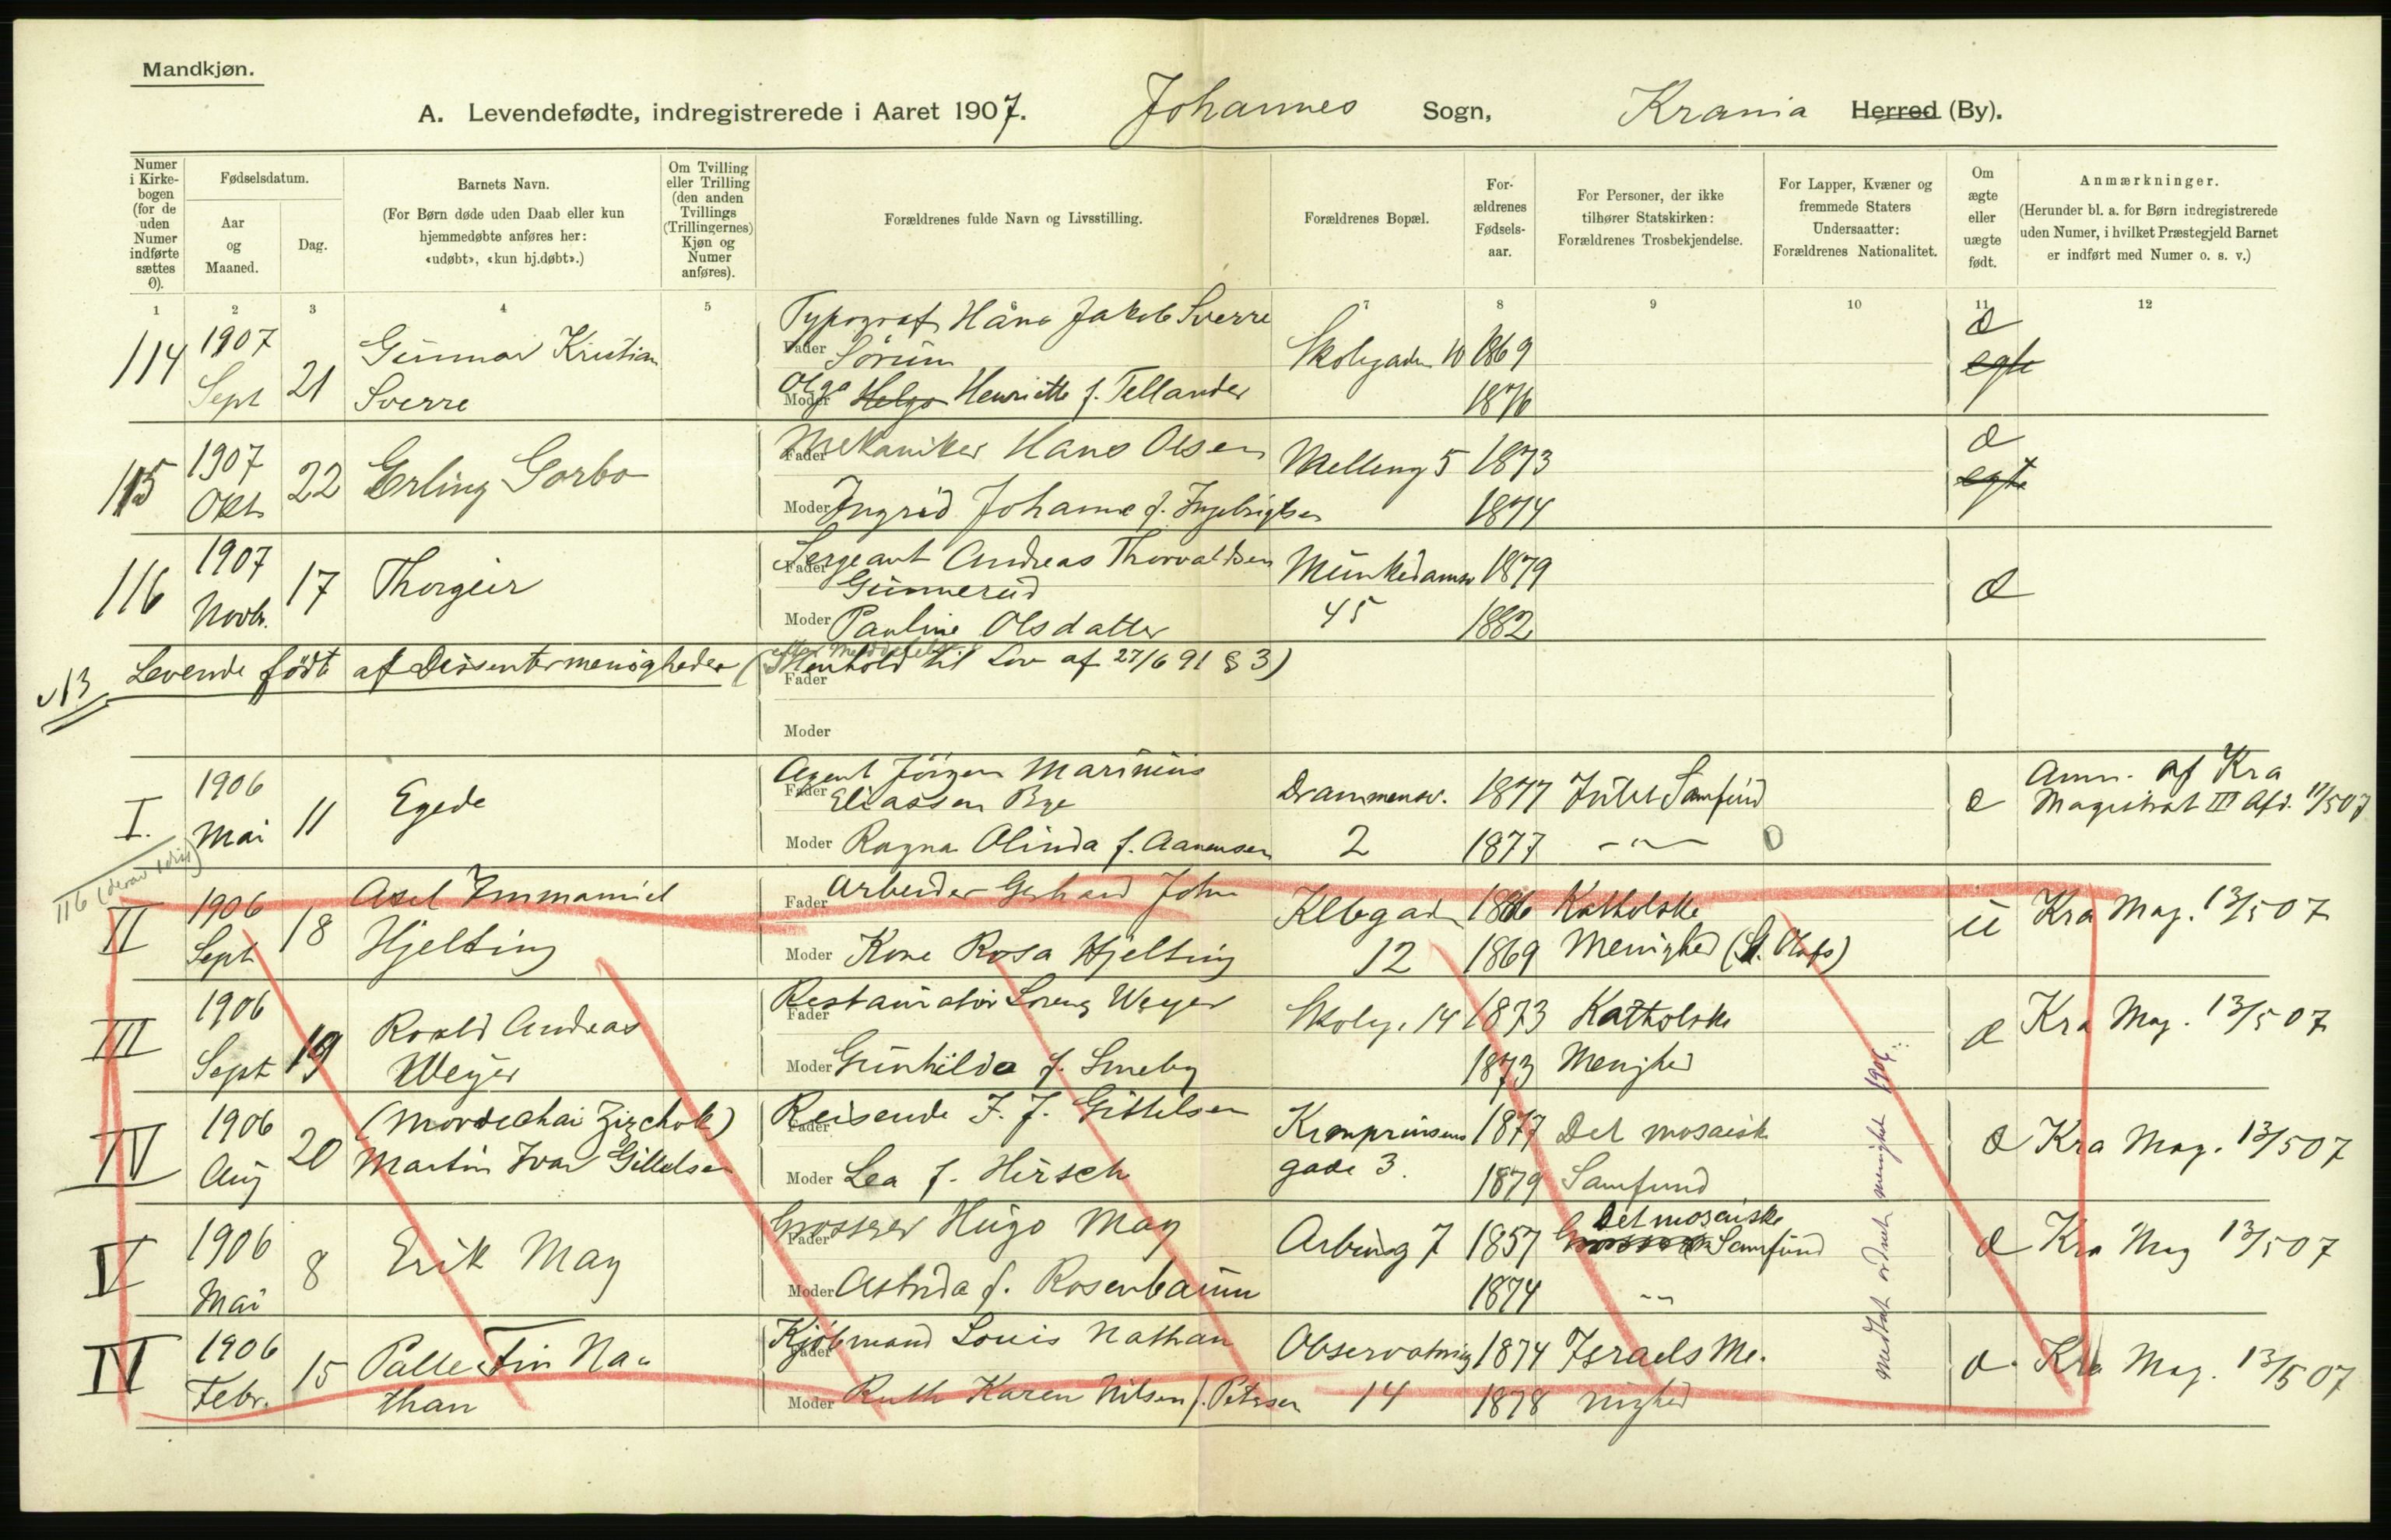 Mandkjøn.
A. Levendefødte, indregistrerede i Aaret 1907. Johannes Sogn, Krania Herred (By).
Numer i Kirkebogen (for de uden Numer indførte sættes 0).
Fødselsdatum.
Aar og Maaned.
Dag.
Barnets Navn.
(For Børn døde uden Daab eller kun hjemmedøbte anføres her: «udøbt», «kun hj.døbt».)
Om Tvilling eller Trilling (den anden Tvillings (Trillingernes) Kjøn og Numer anføres).
Forældrenes fulde Navn og Livsstilling.
Forældrenes Bopæl.
Forældrenes Fødselsaar.
For Personer, der ikke tilhører Statskirken: Forældrenes Trosbekjendelse.
For Lapper, Kvæner og fremmede Staters Undersaatter: Forældrenes Nationalitet.
Om ægte eller uægte født.
Anmærkninger.
(Herunder bl. a. for Børn indregistrerede uden Numer, i hvilket Præstegjeld Barnet er indført med Numer o. s. v.)
1 2 3 4 5 6 7 8 9 10 11 12
114 1907 Sept 21 Gunnar Kristian Sverre
Fader Typograf Hans Jakob Sverre Sørum Skolegaden 10 1869 æ egte
Moder Olga Helga Henriette f. Tellander 1876
115 1907 Okt 22 Erling Gorbo
Fader Mekaniker Hans Olsen Mellemg 5 1873 æ egte
Moder Ingrid Johanne f. Ingebrigtsen 1874
116 1907 Novb. 17 Thorgeir
Fader Sergeant Andreas Thorvaldsen Gunnerud Munkedamsv 45 1879 æ
Moder Pauline Olsdatter 1882
13 Levende födt af Dissentermenigheder (efter meddelelse i Henhold til Lov af 27/6 91 § 3)
Fader
Moder
I. 1906 Mai 11 Egede
Fader Agent Jörgen Marinius Eliassen Bye Drammensv. 2 1877 Frikt Samfund æ Anm. af Kra Magistrat III Afd. 11/5 07
Moder Ragna Olinda f. Aanensen 1877 - " - 0
116 (derav
II 1906 Sept 18 Axel Immanuel Hjelting
Fader Arbeider Gerhard John 1886 Katholske ü Kra Mag. 13/5 07
Moder Kone Rosa Hjelting 12 1869 Menighed (St. Olafs)
III 1906 Sept 19 Roald Andreas Weyer
Fader Restauratör Lorenz Weyer Skoleg. 14 1873 Katholske æ Kra Mag. 13/5 07
Moder Gunhilda f. Smeby 1873 Menighed
IV 1906 Aug 20 (Mordechai Zizchok) Martin Ivar Gittelsen
Fader Reisende I. J. Gittelsen Kronprinsens gade 3. 1877 Det mosaiske æ Kra Mag. 13/5 07
Moder Lea f. Hirsch 1879 Samfund
V 1906 Mai 8 Erik May
Fader Grosser Hugo May Arbiensg 7 1857 Det mosaiske Samfund æ Kra Mag 13/5 07
Moder Astrida f. Rosenbaum 1874 - " -
IV 1906 Febr. 15 Palle Fin Nathan
Fader Kjöbmand Louis Nathan Observatorieg 14 1874 Israels Me- æ Kra Mag. 13/5 07
Moder Ruth Karen Nilsen f. Petersen 1878 nighed